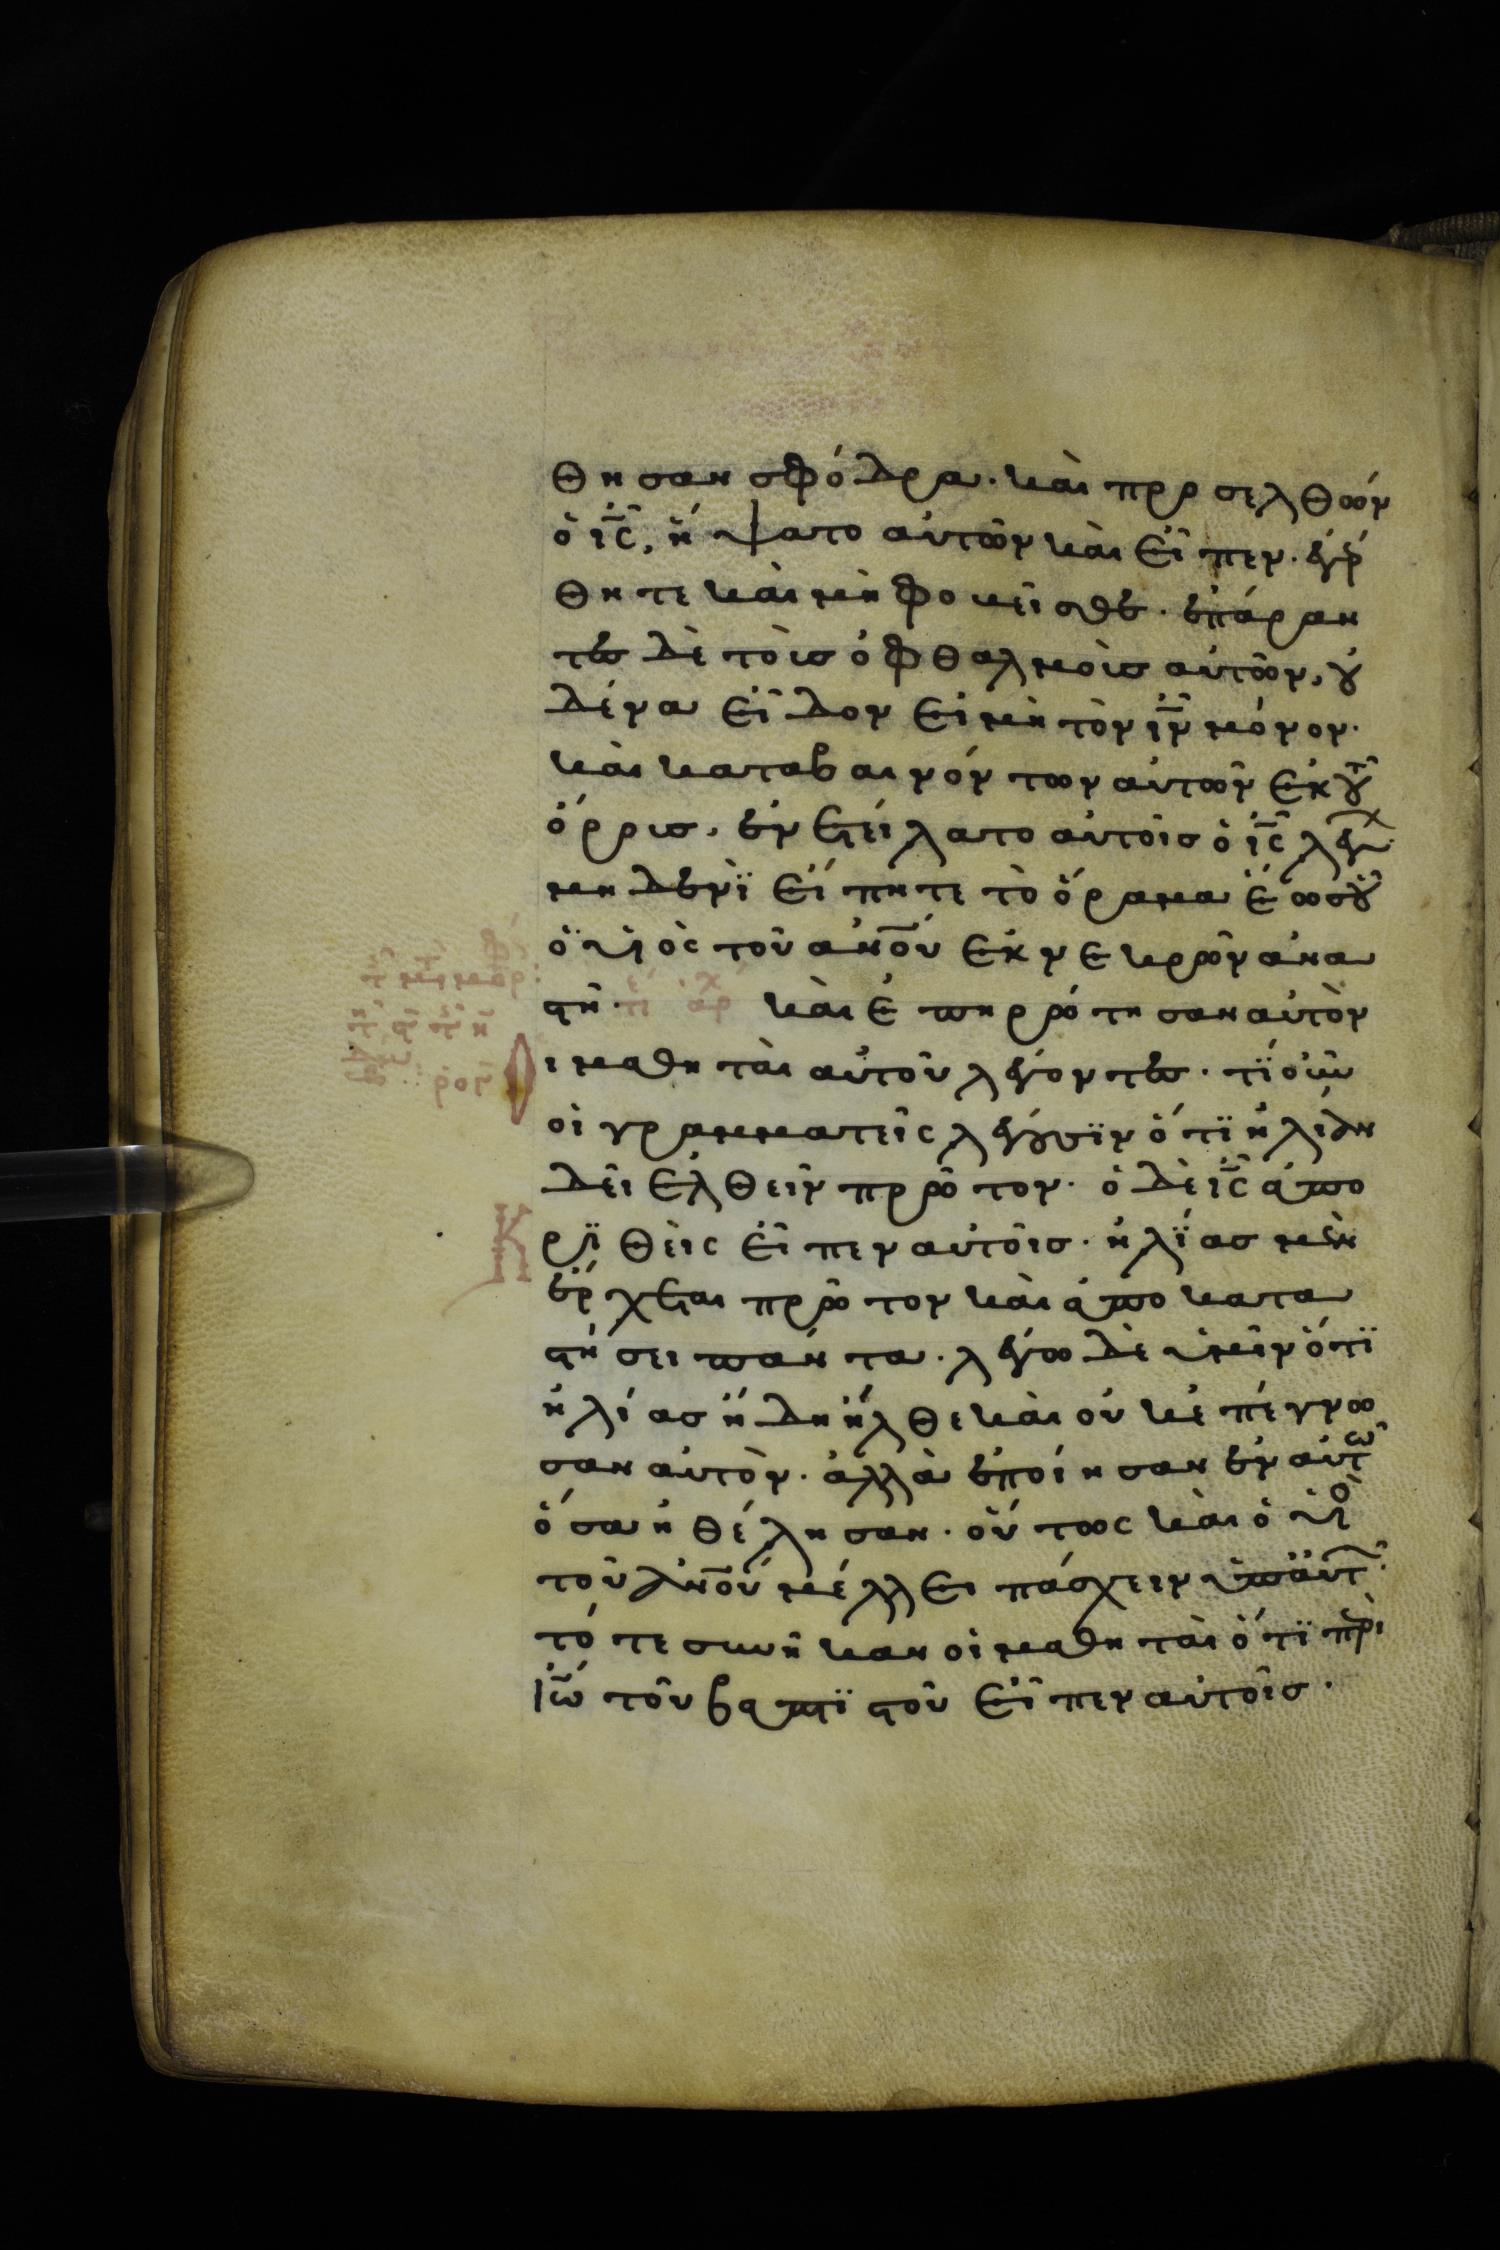 θησαν σφόδρα· καὶ προσελθὼν
ὁ ις̅, ἥψατο αὐτῶν καὶ εἶπεν· ἐγέρ
θητε καὶ μὴ φοβεῖσθε· ἐπάραν
τες δὲ τοὺς ὀφθαλμοὺς αὐτῶν, οὐ
δένα εἶδον εἰ μὴ τὸν ιν̅ μόνον·
καὶ καταβαινόντων αὐτῶν ἐκ τοῦ
ὄρους, ἐνετείλατο αὐτοῖς ὁ ις̅ λέγων·
μηδενὶ εἴπητε τὸ ὅραμα ἕως οὗ
ὁ υἱὸς τοῦ ανο̅υ ἐκ νεκρῶν ἀνα
στῆ· τέ ἀρχ καὶ ἐπηρώτησαν αὐτὸν
Οἱ μαθηταὶ αὐτοῦ λέγοντες· τί οὖν
οἱ γραμματεῖς λέγουσιν ὅτι ἠλίαν
δεῖ ἐλθεῖν πρῶτον· ὁ δὲ ις̅ ἀπο
κριθεὶς εἶπεν αὐτοῖς· ἠλίας μὲν
ἔρχεται πρῶτον καὶ ἀποκατα
στήσει πάντα· λέγω δὲ ὑμῖν ὅτι
ἠλίας ἤδη ἦλθε καὶ οὐκ ἐπέγνω
σαν αὐτὸν· ἀλλὰ ἐποίησαν ἐν αὐτῶ
ὅσα ἠθέλησαν· οὕτως καὶ ὁ υἱὸ
τοῦ ανο̅υ μέλλει πάσχειν ὑπ αὐτ·
τότε συνῆκαν οἱ μαθηταὶ ὅτι περὶ
ιω̅ τοῦ βαπτιστοῦ εἶπεν αὐτοῖς·